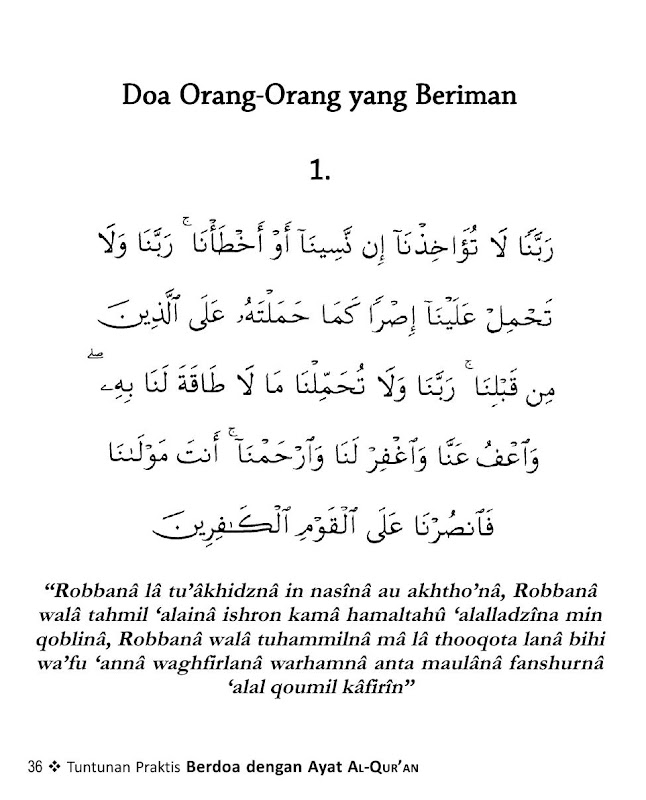 Doa Orang-Orang yang Beriman
1.
رَبَّنَا لَا تُؤَاخِذْنَآ إِن نَّسِينَآ أَوْ أَخْطَأْنَا ۚ رَبَّنَا وَلَا
تَحْمِلْ عَلَيْنَآ إِصْرًا كَمَا حَمَلْتَهُۥ عَلَى ٱلَّذِينَ
مِن قَبْلِنَا ۚ رَبَّنَا وَلَا تُحَمِّلْنَا مَا لَا طَاقَةَ لَنَا بِهِۦ ۖ
وَٱعْفُ عَنَّا وَٱغْفِرْ لَنَا وَٱرْحَمْنَآ ۚ أَنتَ مَوْلَىٰنَا
فَٱنصُرْنَا عَلَى ٱلْقَوْمِ ٱلْكَـٰفِرِينَ
“Robbanâ lâ tu’âkhidznâ in nasînâ au akhtho’nâ, Robbanâ
walâ tahmil ‘alainâ ishron kamâ hamaltahû ‘alalladzîna min
qoblinâ, Robbanâ walâ tuhammilnâ mâ lâ thooqota lanâ bihi
wa’fu ‘annâ waghfirlanâ warhamnâ anta maulânâ fanshurnâ
‘alal qoumil kâfirîn”
36 ❖ Tuntunan Praktis Berdoa dengan Ayat AL-QUR’AN